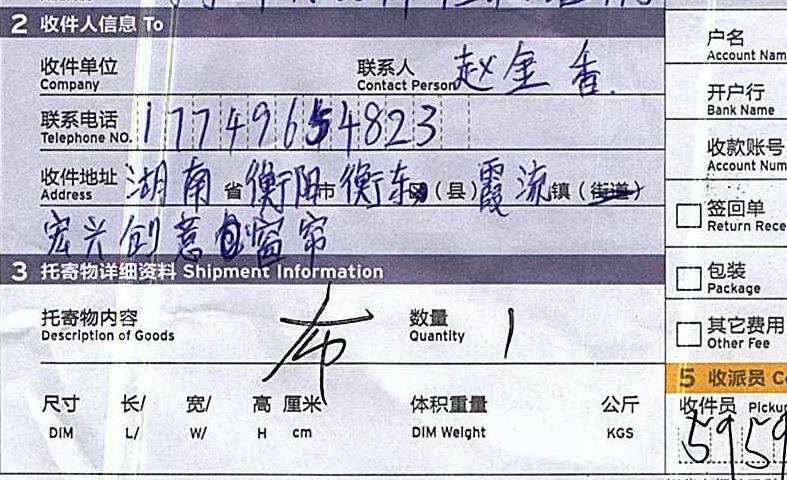 2 收件人信息 To
收件单位 Company 联系人 Contact Person 赵金香
联系电话 Telephone NO. 17749654823
收件地址 Address 湖南省衡阳市衡东区(县)霞流镇(街道)
宏兴创意窗帘
3 托寄物详细资料 Shipment Information
托寄物内容 Description of Goods 布 数量 Quantity 1
尺寸 长/ 宽/ 高 厘米 体积重量 公斤
DIM L/ W/ H cm DIM Weight KGS
户名
Account Nam
开户行
Bank Name
收款账号
Account Num
签回单
Return Rece
包装
Package
其它费用
Other Fee
5 收派员 Co
收件员 Pickup
5959